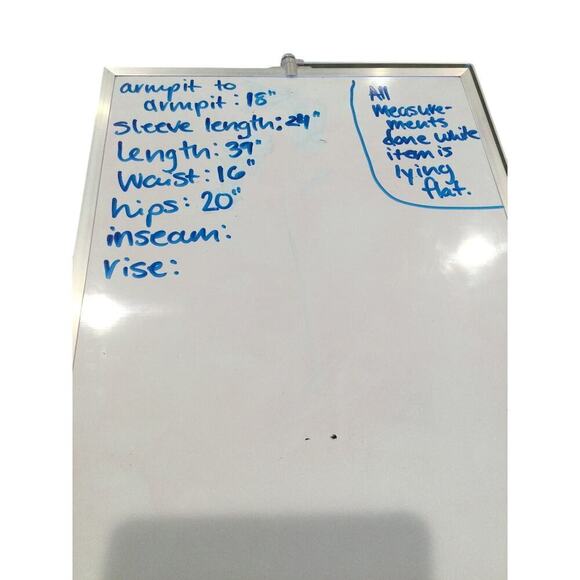 armpit to
armpit: 18"
sleeve length: 24"
Length: 39"
Waist: 16"
hips: 20"
inseam:
rise:
All
measure-
ments
done while
item is
lying
flat.